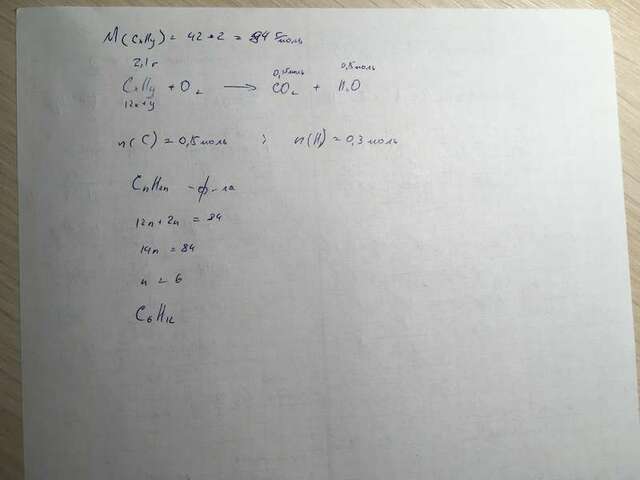 M(CxHy) = 42 * 2 = 84 г/моль
2,1 г 0,15моль 0,15моль
CxHy + O2 → CO2 + H2O
12x+y
n(C) = 0,15моль ; n(H) = 0,3 моль
CnH2n - ф-ла
12n + 2n = 84
14n = 84
n = 6
C6H12